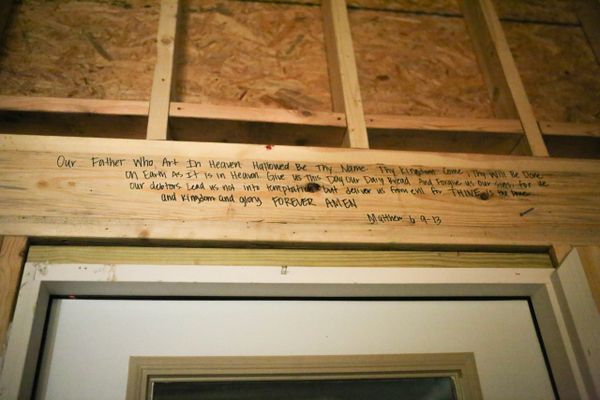 Our Father Who Art In Heaven Hallowed Be Thy Name Thy Kingdom Come, Thy Will Be Done
On Earth As It is in Heaven. Give us This Day Our Daily Bread. And Forgive us our sins, for we
our debtors Lead us not into temptation but deliver us from evil for THINE is the power
and Kingdom and glory FOREVER AMEN
Matthew 6 9-13